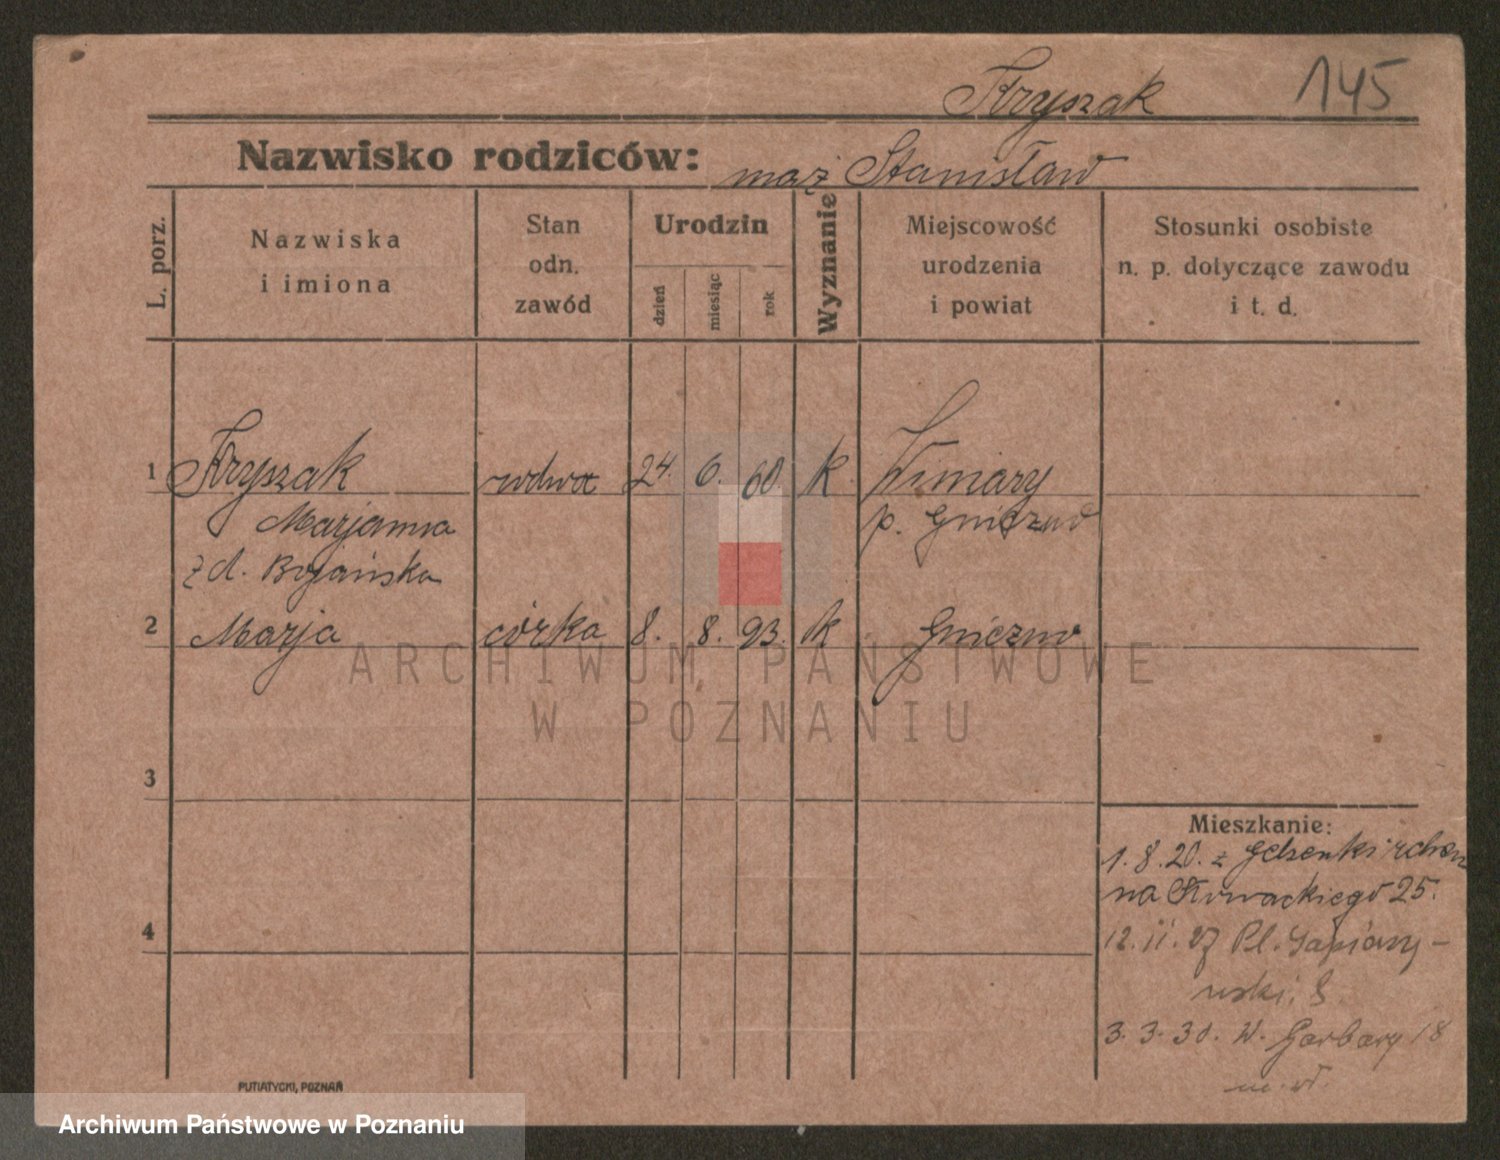 Kryszak 145
Nazwisko rodziców: mąż Stanisław
L. porz.
Nazwiska
i imiona
Stan
odn.
zawód
Urodzin
dzień
miesiąc
rok
Wyznanie
Miejscowość
urodzenia
i powiat
Stosunki osobiste
n. p. dotyczące zawodu
i t. d.
1 Kryszak wdwa 24. 6. 60 k
Marjanna p. Gniezno
z d. Bojańska
2 Marja córka 8. 8. 93. k Gniezno
ARCHIWUM PAŃSTWOWE
W POZNANIU
3
4
Mieszkanie:
1. 8. 20. z Gelsenkirchen
na Słowackiego 25.
12. 11. 27 Pl. Sapieżyński 8.
3. 3. 30. W. Garbary 18
PUTIATYCKI, POZNAŃ
Archiwum Państwowe w Poznaniu